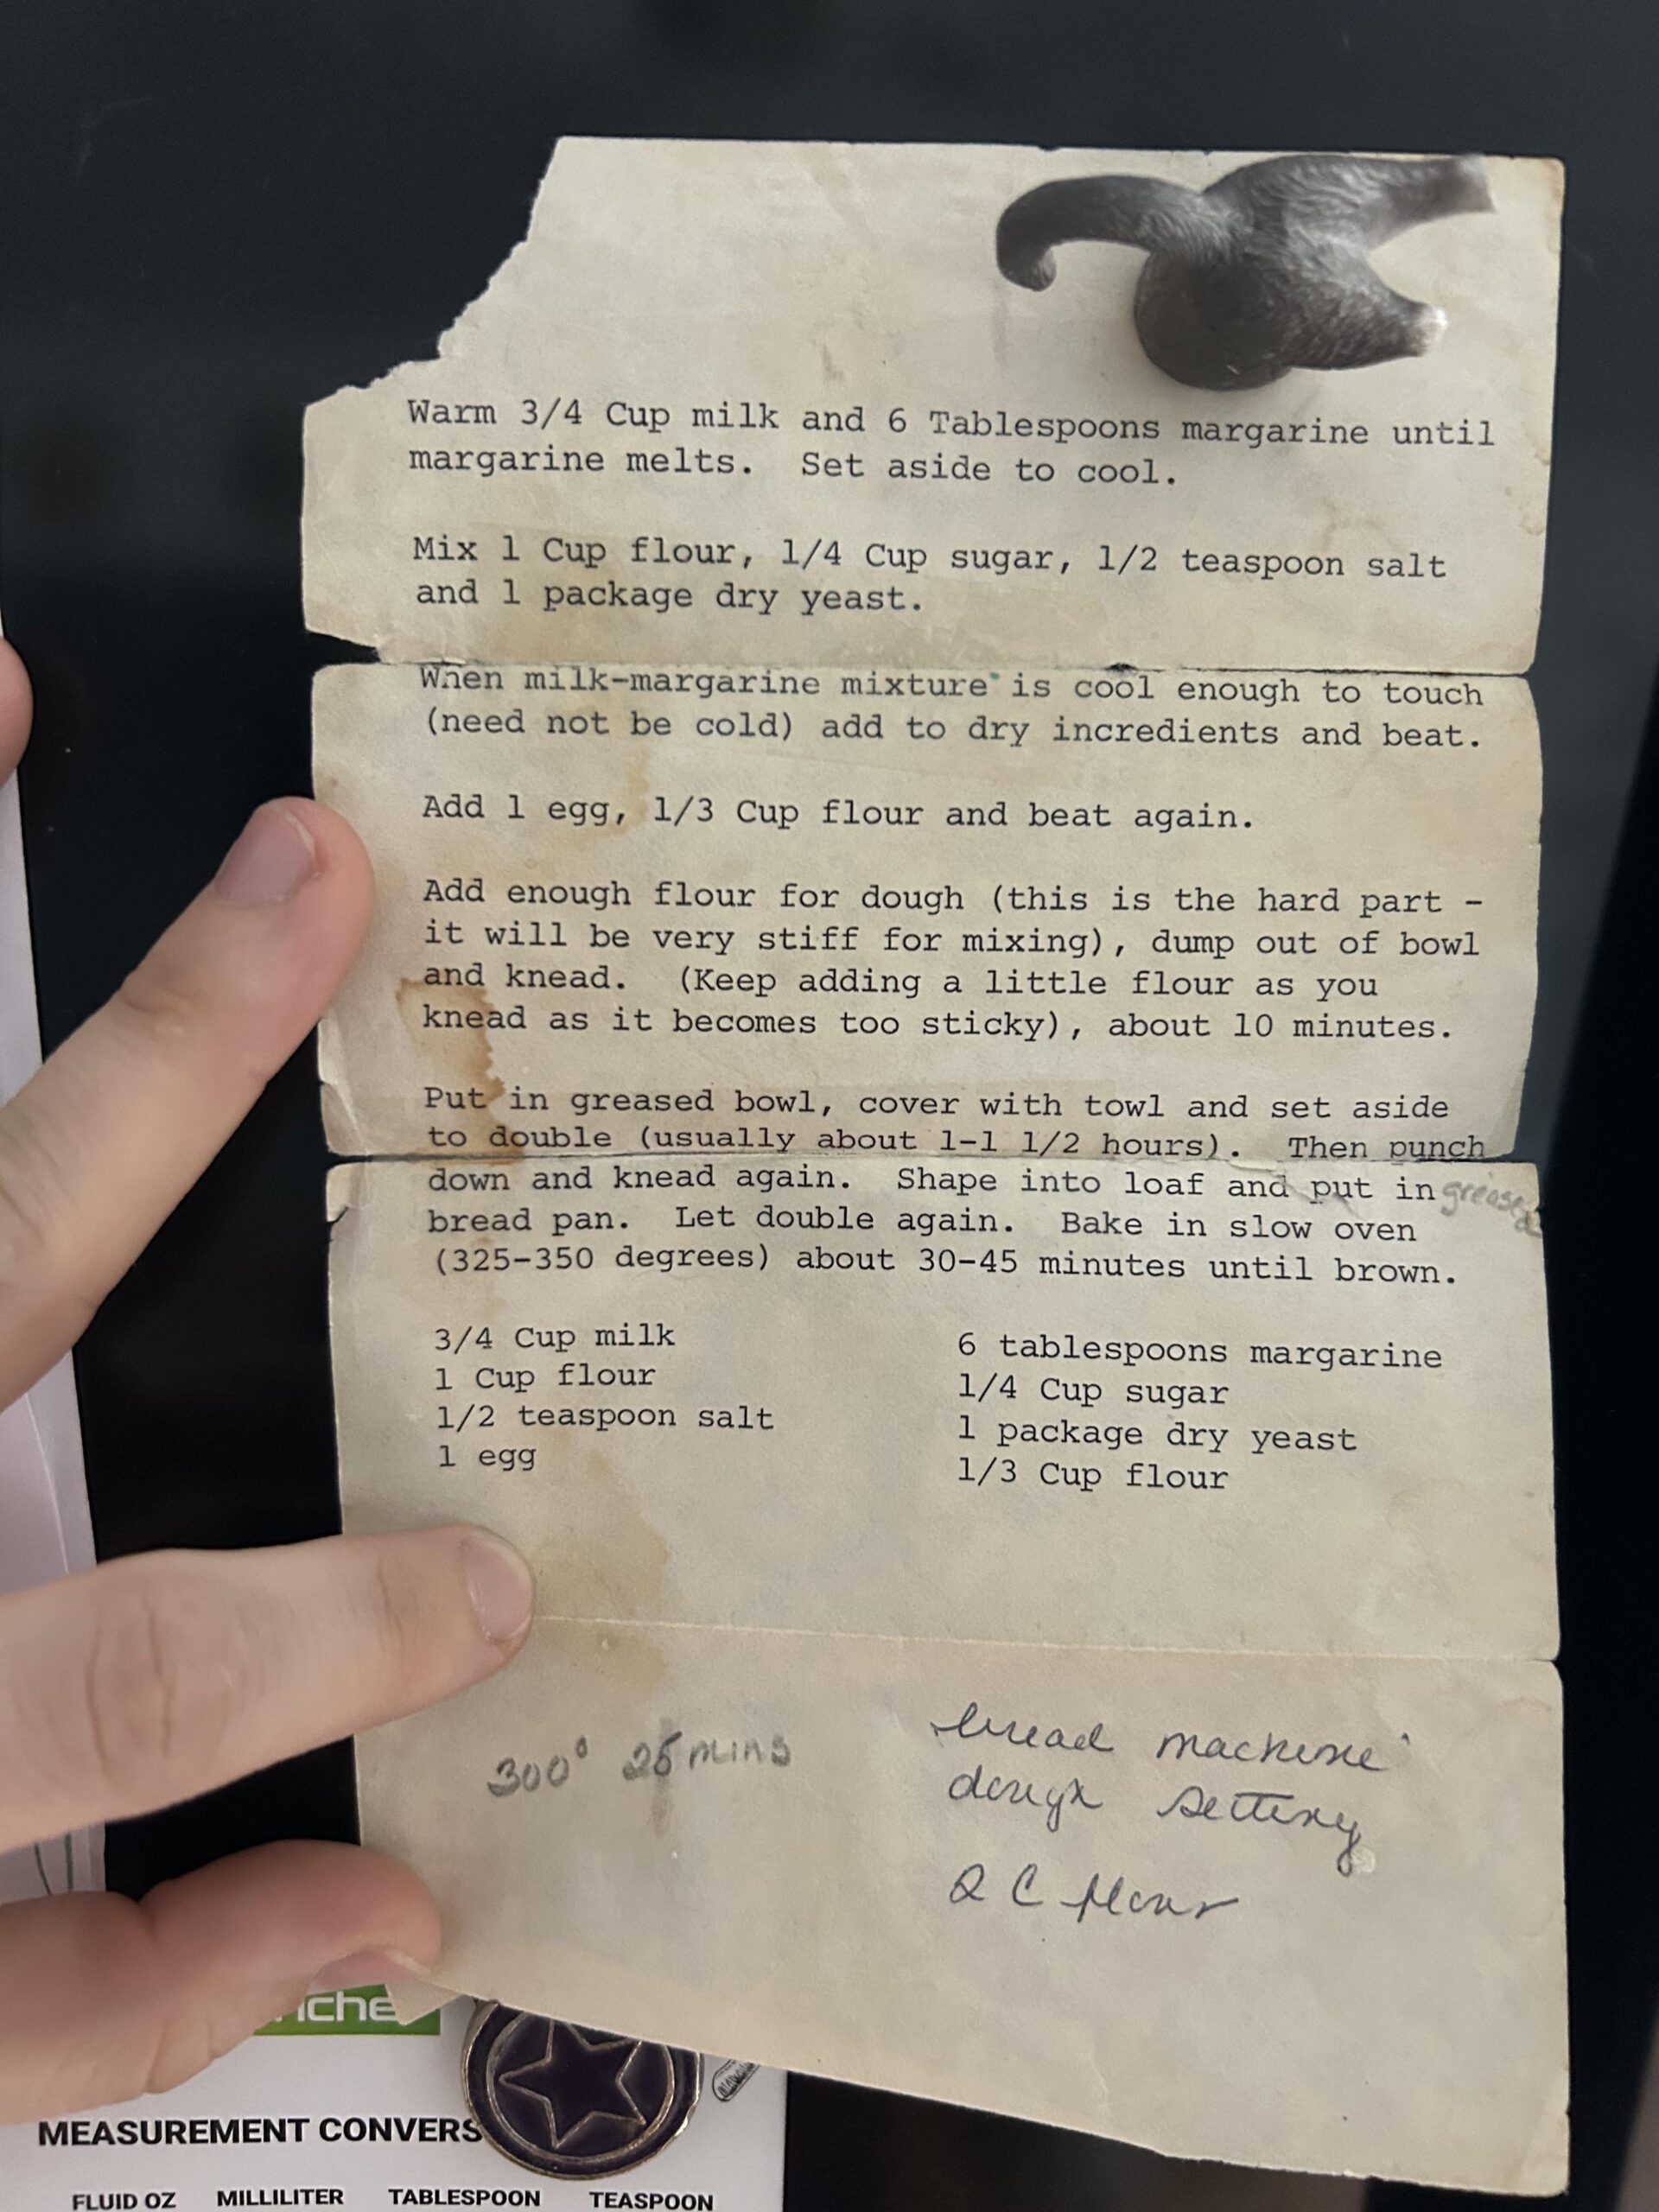 Warm 3/4 Cup milk and 6 Tablespoons margarine until
margarine melts.  Set aside to cool.
Mix 1 Cup flour, 1/4 Cup sugar, 1/2 teaspoon salt
and 1 package dry yeast.
When milk-margarine mixture is cool enough to touch
(need not be cold) add to dry incredients and beat.
Add 1 egg, 1/3 Cup flour and beat again.
Add enough flour for dough (this is the hard part -
it will be very stiff for mixing), dump out of bowl
and knead.  (Keep adding a little flour as you
knead as it becomes too sticky), about 10 minutes.
Put in greased bowl, cover with towl and set aside
to double (usually about 1-1 1/2 hours).  Then punch
down and knead again.  Shape into loaf and put in greased
bread pan.  Let double again.  Bake in slow oven
(325-350 degrees) about 30-45 minutes until brown.
3/4 Cup milk
1 Cup flour
1/2 teaspoon salt
1 egg
6 tablespoons margarine
1/4 Cup sugar
1 package dry yeast
1/3 Cup flour
300° 25 mins
bread machine
dough setting
2 C flour
MEASUREMENT CONVERS
FLUID OZ MILLILITER TABLESPOON TEASPOON